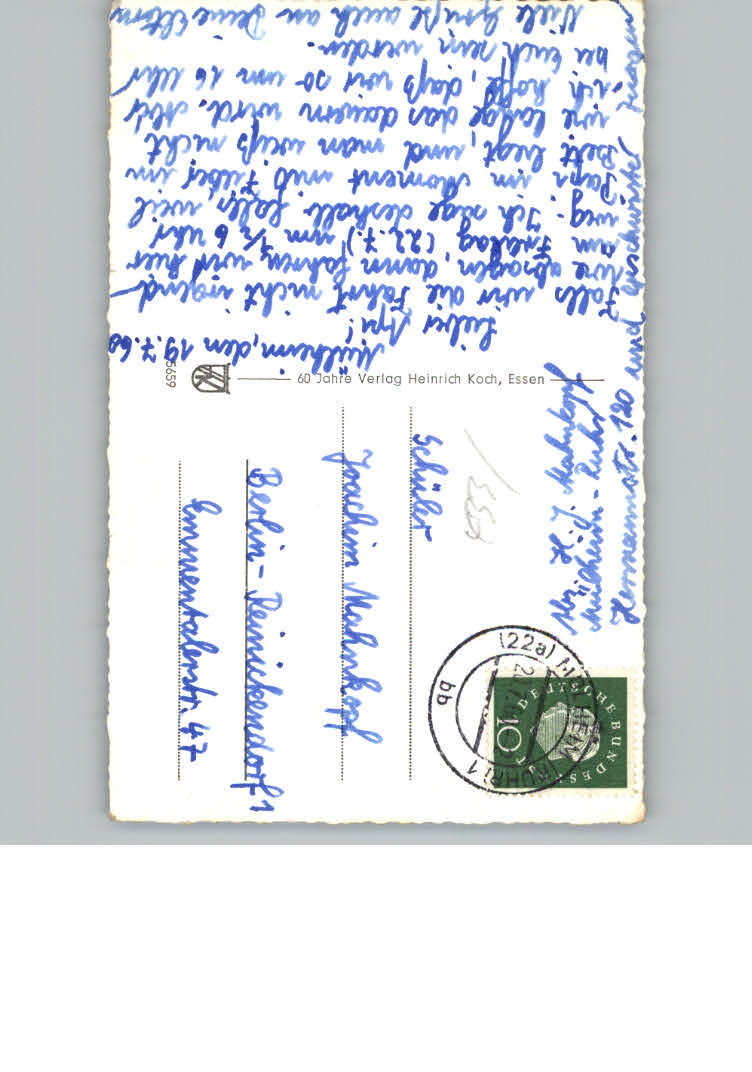 Mülheim, den 19.7.60
Lieber Apu!
Falls wir die Fahrt nicht irgend
wie absagen, dann fahren wir hier
am Freitag (22.7.) um ½ 6 Uhr
weg. Ich sage deshalb falls, weil
Papa im Moment mit Fieber im
Bett liegt, und man weiß nicht
wie lange das dauern wird. Aber
ich hoffe, daß wir so um 16 Uhr
bei Euch sein werden.
Viele Grüße auch an Deine Eltern
und Geschwister, Jürgen
5659
60 Jahre Verlag Heinrich Koch, Essen
Abs. H. J. Mahnkopf
Mülheim-Ruhr
Hermannstr. 120
Schüler
Joachim Mahnkopf
Berlin-Reinickendorf 1
Emmentalerstr. 47
(22a) MÜLHEIM (RUHR) 1
bb
DEUTSCHE BUNDES
10